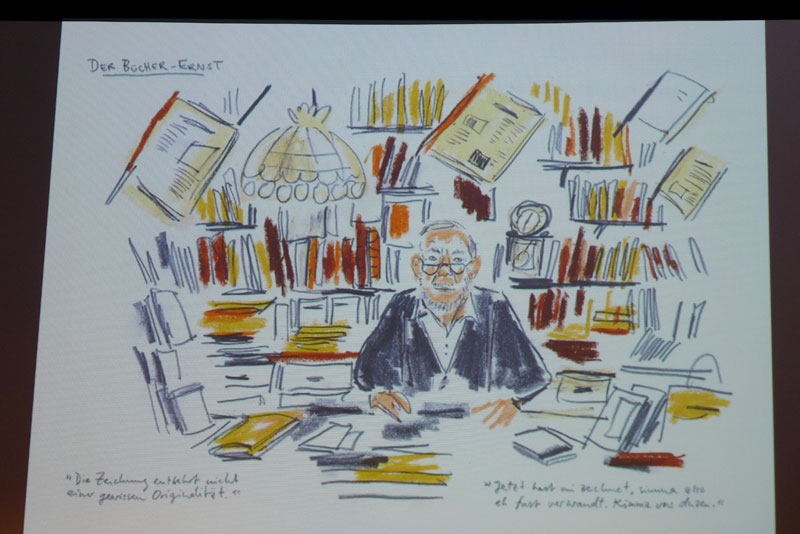 DER BÜCHER-ERNST
"Die Zeichnung entbehrt nicht
einer gewissen Originalität."
"Jetzt hast mi zeichnet, simma also
eh fast verwandt. Kömma uns duzen."